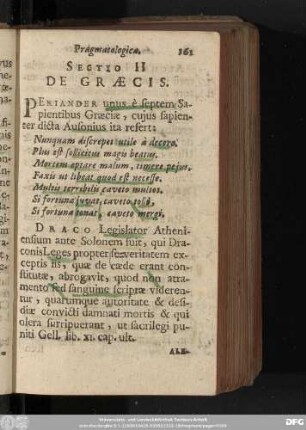 Pragmatologica. 161
SECTIO II
DE GRÆCIS.
PERIANDER unus è septem Sa-
pientibus Græciæ, cujus sapien-
ter dicta Ausonius ita refert:
Nunquam discrepet utile à decoro.
Plus est sollicitus magis beatus.
Mortem optare malum, timere pejus,
Faxis ut libeat quod est necesse.
Multis terribilis caveto multos.
Si fortuna juvat, caveto tolli,
Si fortuna tonat, caveto mergi.
DRACO Legislator Atheni-
ensium ante Solonem fuit, qui Dra-
conis Leges propter severitatem ex-
ceptis iis, quæ de cæde erant con-
stitutæ, abrogavit, quod non atra-
mento sed sanguine scriptæ videren-
tur, quarumque autoritate & desi-
diæ convicti damnati mortis & qui
olera surripuerant, ut sacrilegi pu-
niti Gell. lib. XI. cap. ult.
ALE-